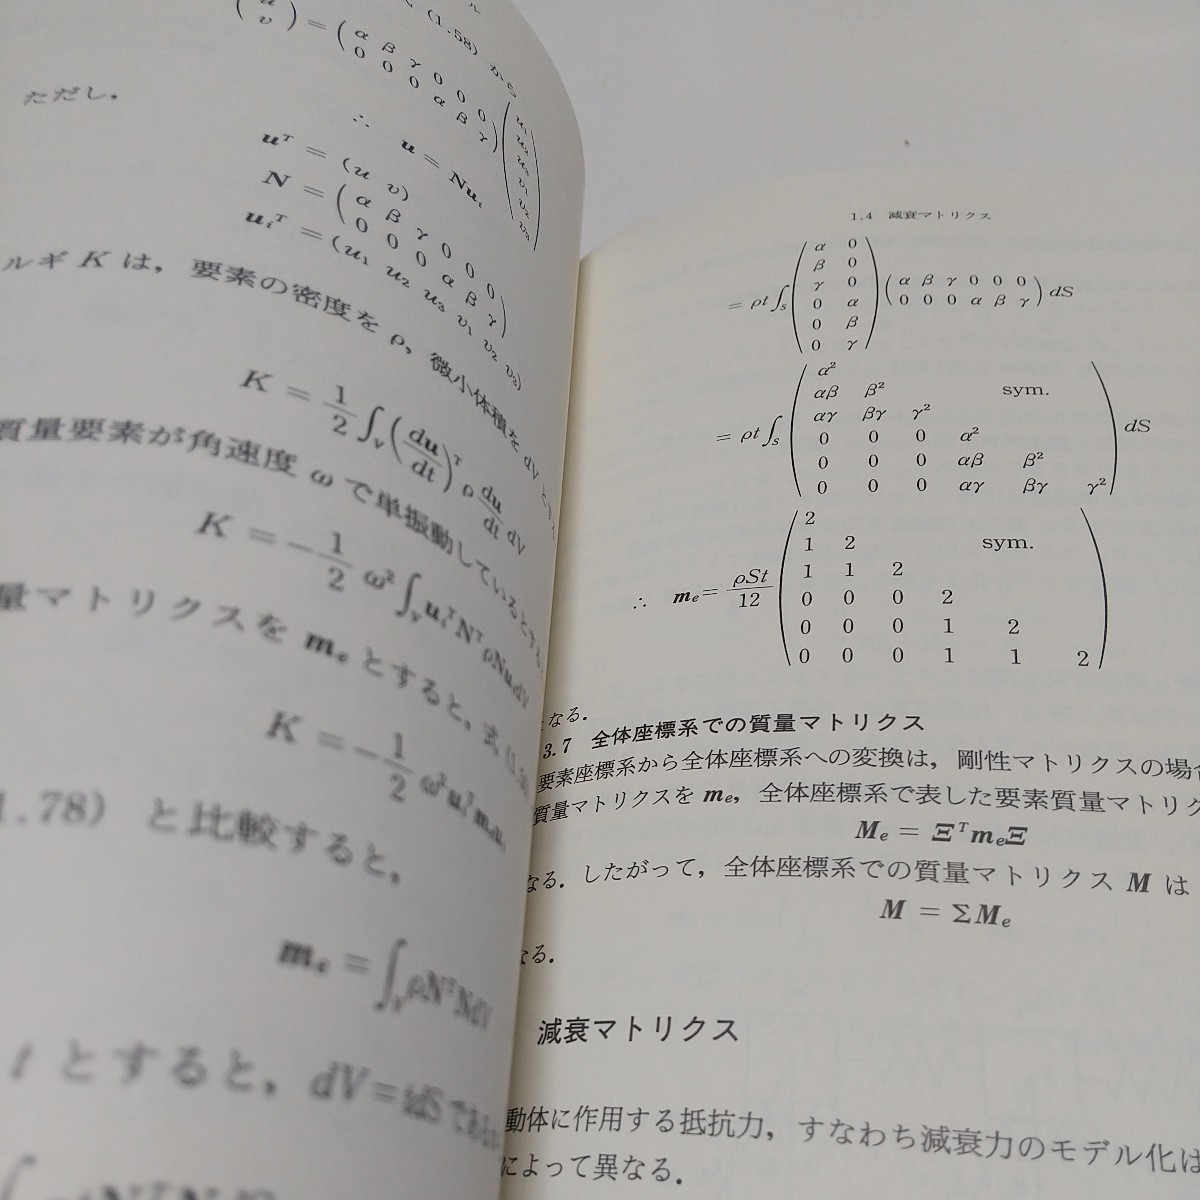 (1.58) から
(u v) = (α β γ 0 0 0
0 0 0 α β γ) (u₁ u₂ u₃ v₁ v₂ v₃)
∴ u = Nuᵢ
ただし，
uᵀ = (u v)
N = (α β γ 0 0 0
0 0 0 α β γ)
uᵢᵀ = (u₁ u₂ u₃ v₁ v₂ v₃)
ルギ K は，要素の密度を ρ，微小体積を dV と
K = 1/2 ∫ᵥ (du/dt)ᵀ ρ du/dt dV
質量要素が角速度 ω で単振動しているとする．
K = −1/2 ω² ∫ᵥ uᵢᵀNᵀρNuᵢdV
量マトリクスを mₑ とすると，式
K = −1/2 ω²uᵢᵀmₑuᵢ
1.78) と比較すると，
mₑ = ∫ᵥ ρNᵀNdV
t とすると，dV = tdS である
1.4 減衰マトリクス
= ρt∫ₛ (α 0
β 0
γ 0
0 α
0 β
0 γ) (α β γ 0 0 0
0 0 0 α β γ) dS
= ρt∫ₛ (α²
αβ β² sym.
αγ βγ γ²
0 0 0 α²
0 0 0 αβ β²
0 0 0 αγ βγ γ²) dS
∴ mₑ = ρSt/12 (2
1 2 sym.
1 1 2
0 0 0 2
0 0 0 1 2
0 0 0 1 1 2)
なる．
3.7 全体座標系での質量マトリクス
要素座標系から全体座標系への変換は，剛性マトリクスの場合
質量マトリクスを mₑ，全体座標系で表した要素質量マトリク
Mₑ = ΞᵀmₑΞ
なる．したがって，全体座標系での質量マトリクス M は
M = ΣMₑ
なる．
減衰マトリクス
動体に作用する抵抗力，すなわち減衰力のモデル化は
によって異なる．